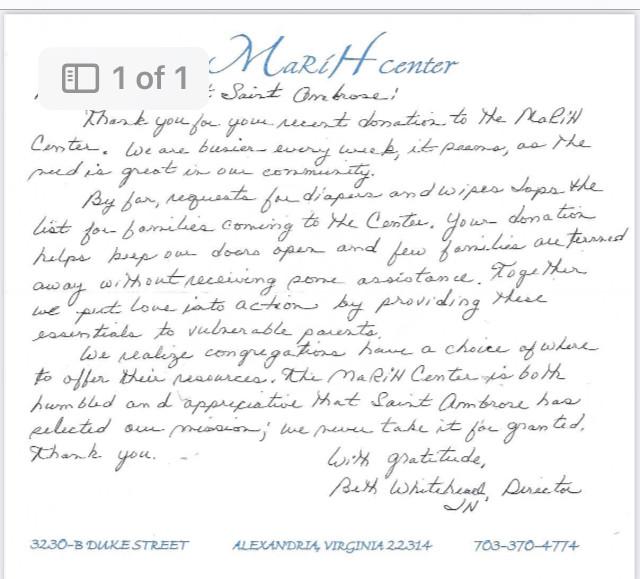 MaRiH center
1 of 1
: Saint Ambrose!
Thank you for your recent donation to the MaRiH
Center. We are busier every week, it seems, as the
need is great in our community.
By far, requests for diapers and wipes tops the
list for families coming to the Center. Your donation
helps keep our doors open and few families are turned
away without receiving some assistance. Together
we put love into action by providing these
essentials to vulnerable parents.
We realize congregations have a choice of where
to offer their resources. The MaRiH Center is both
humbled and appreciative that Saint Ambrose has
selected our mission; we never take it for granted.
Thank you.
With gratitude,
Beth Whitehead, Director
3230-B DUKE STREET ALEXANDRIA, VIRGINIA 22314 703-370-4774